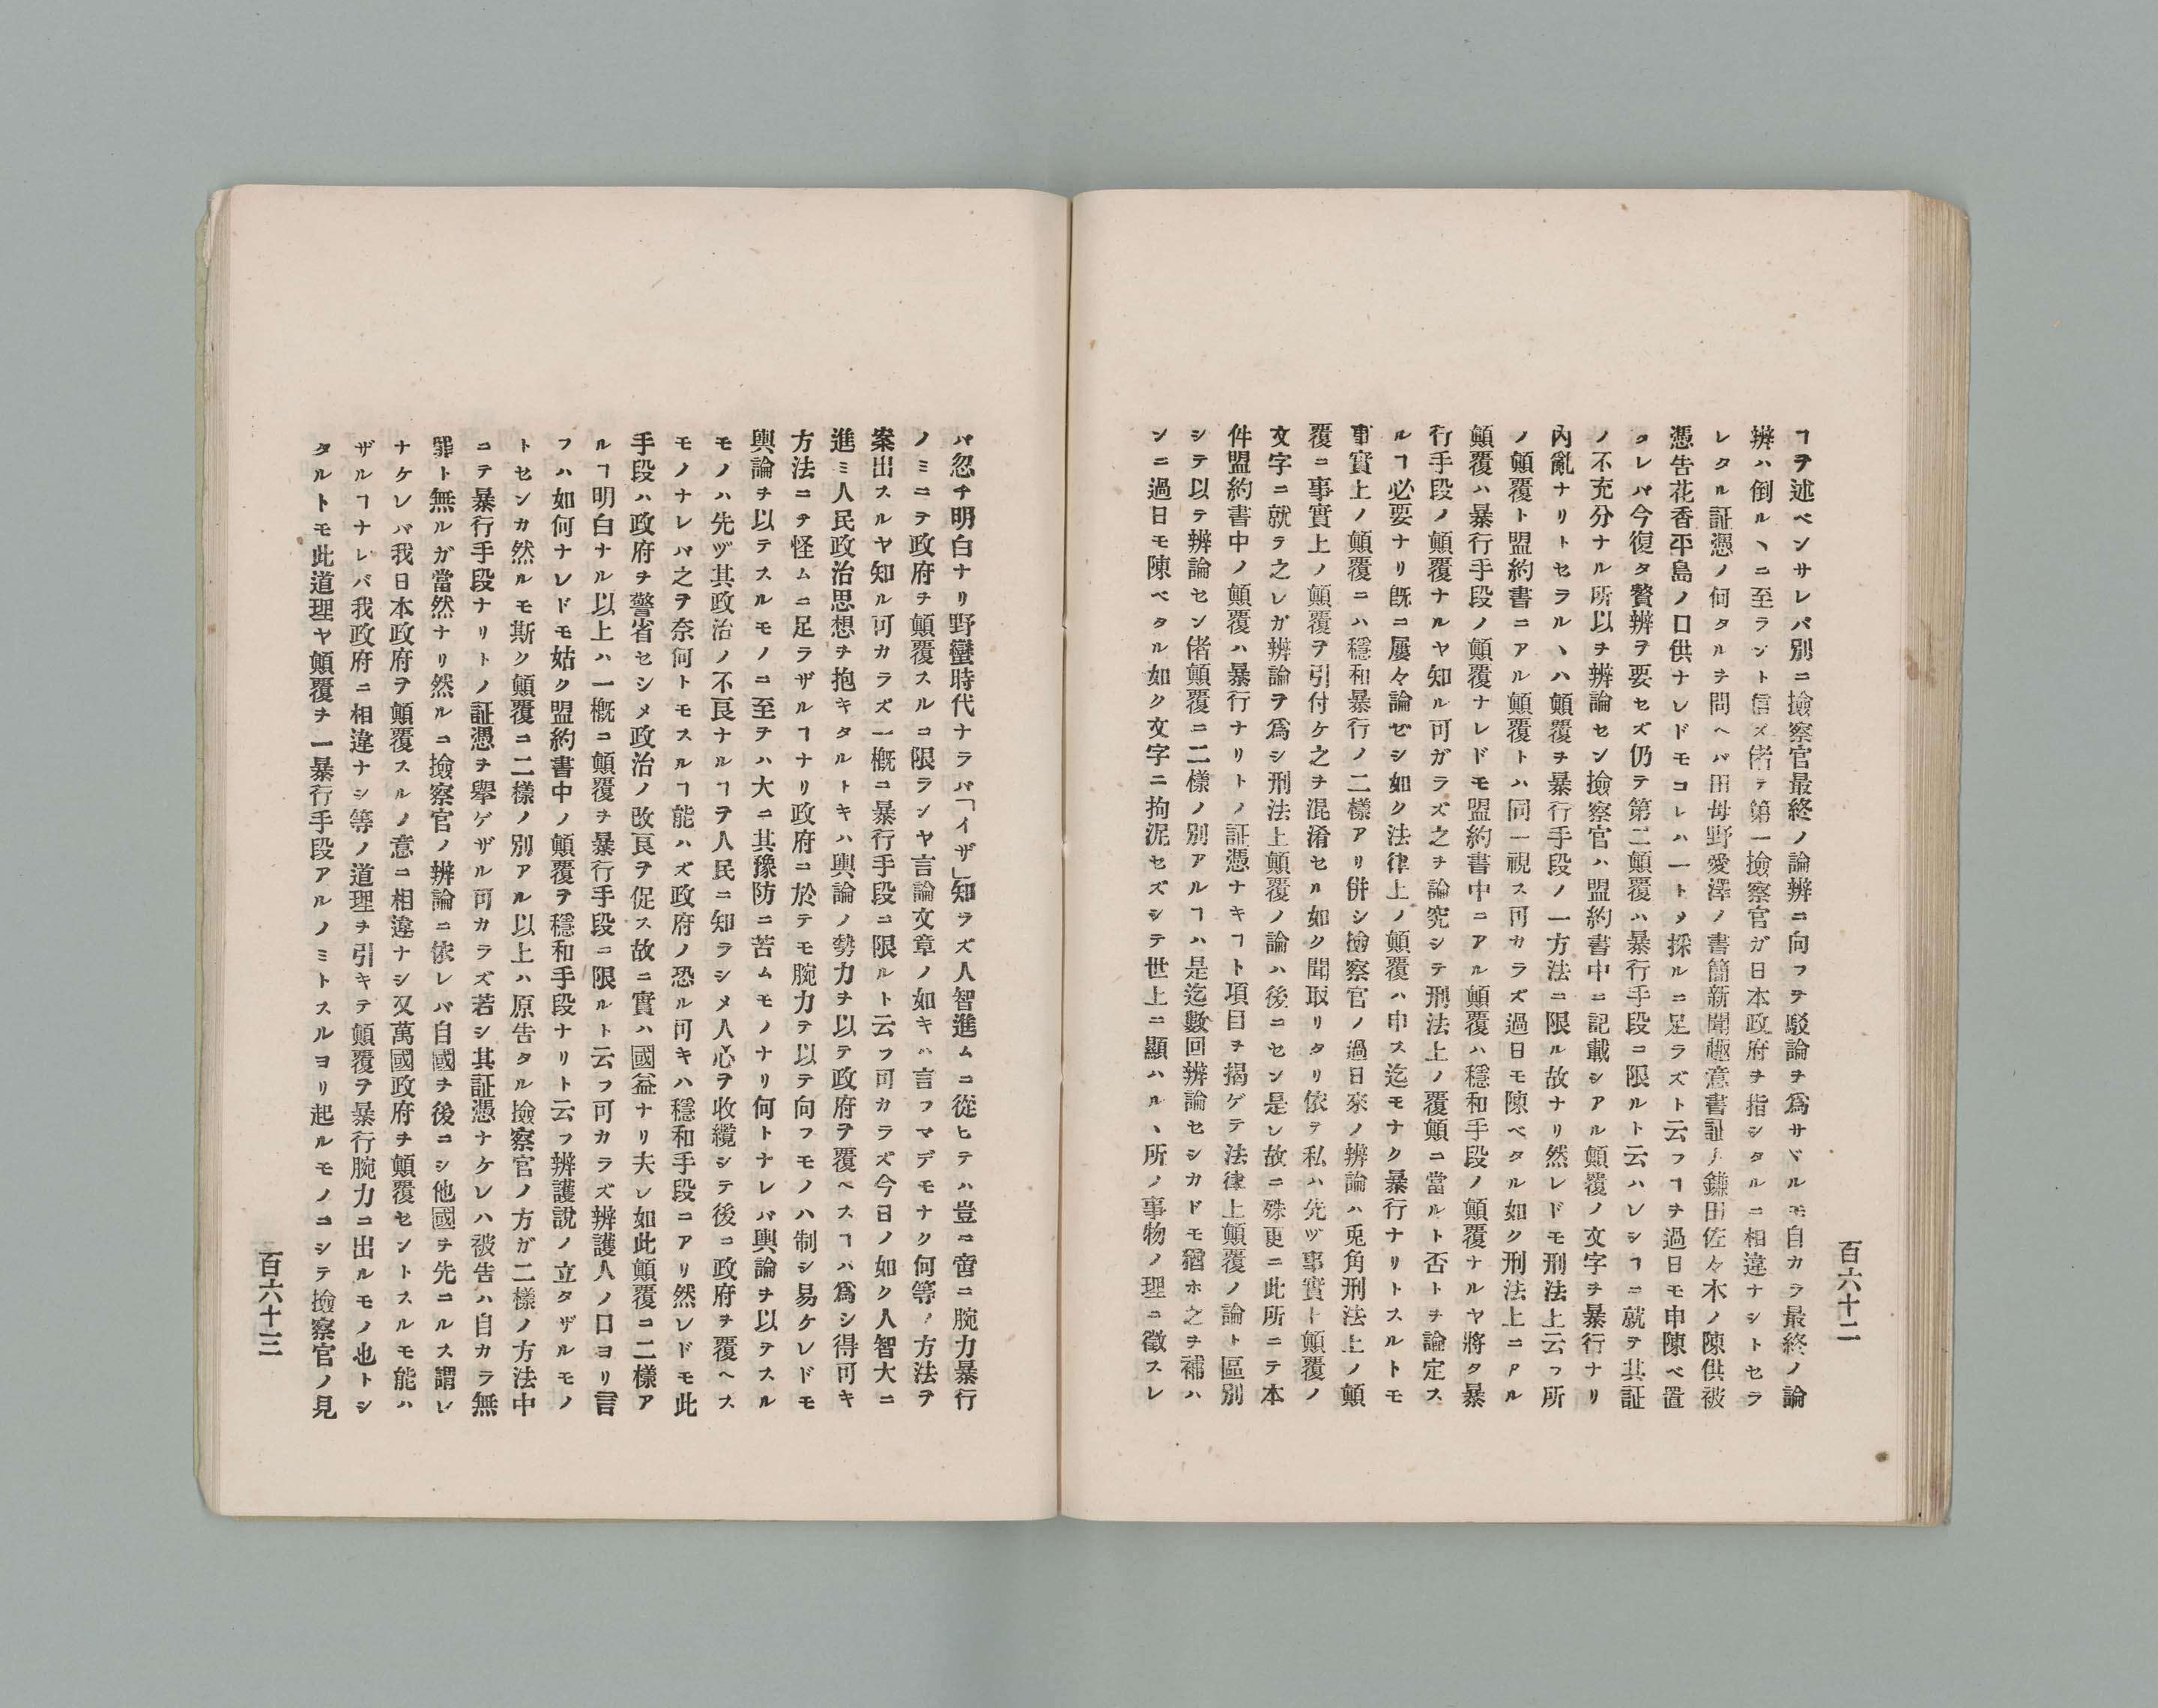 百六十二
ヿヲ述ベンサレバ別ニ撿察官最終ノ論辨ニ向フテ駁論ヲ爲サヾルモ自カラ最終ノ論
辨ハ倒ルヽニ至ラント信ズ偖テ第一撿察官ガ日本政府ヲ指シタルニ相違ナシトセラ
レタル証憑ノ何タルヲ問ヘバ田母野愛澤ノ書簡新聞趣意書証人鎌田佐々木ノ陳供被
憑告花香平島ノ口供ナレドモコレハ一トメ採ルニ足ラズト云フヿヲ過日モ申陳ベ置
タレバ今復タ贅辨ヲ要セズ仍テ第二顛覆ハ暴行手段ニ限ルト云ハレシヿニ就テ其証
ノ不充分ナル所以ヲ辨論セン撿察官ハ盟約書中ニ記載シアル顛覆ノ文字ヲ暴行ナリ
內亂ナリトセラルヽハ顛覆ヲ暴行手段ノ一方法ニ限ル故ナリ然レドモ刑法上云フ所
ノ顛覆ト盟約書ニアル顛覆トハ同一視ス可カラズ過日モ陳ベタル如ク刑法上ニアル
顛覆ハ暴行手段ノ顛覆ナレドモ盟約書中ニアル顛覆ハ穩和手段ノ顛覆ナルヤ將タ暴
行手段ノ顛覆ナルヤ知ル可ガラズ之ヲ論究シテ刑法上ノ覆顛ニ當ルト否トヲ論定ス
ルヿ必要ナリ既ニ屢々論ゼシ如ク法律上ノ顛覆ハ申ス迄モナク暴行ナリトスルトモ
事實上ノ顛覆ニハ穩和暴行ノ二樣アリ併シ撿察官ノ過日來ノ辨論ハ兎角刑法上ノ顛
覆ニ事實上ノ顛覆ヲ引付ケ之ヲ混淆セル如ク聞取リタリ依テ私ハ先ヅ事實上顛覆ノ
文字ニ就テ之レガ辨論ヲ爲シ刑法上顛覆ノ論ハ後ニセン是レ故ニ殊更ニ此所ニテ本
件盟約書中ノ顛覆ハ暴行ナリトノ証憑ナキヿト項目ヲ揭ゲテ法律上顛覆ノ論ト區別
シテ以テ辨論セン偖顛覆ニ二樣ノ別アルヿハ是迄數回辨論セシカドモ猶ホ之ヲ補ハ
ンニ過日モ陳ベタル如ク文字ニ拘泥セズシテ世上ニ顯ハルヽ所ノ事物ノ理ニ徵スレ
バ忽チ明白ナリ野蠻時代ナラバ「イザ」知ラズ人智進ムニ從ヒテハ豈ニ啻ニ腕力暴行
ノミニテ政府ヲ顛覆スルニ限ランヤ言論文章ノ如キハ言フマデモナク何等ノ方法ヲ
案出スルヤ知ル可カラズ一概ニ暴行手段ニ限ルト云フ可カラズ今日ノ如ク人智大ニ
進ミ人民政治思想ヲ抱キタルトキハ輿論ノ勢力ヲ以テ政府ヲ覆ヘスヿハ爲シ得可キ
方法ニテ怪ムニ足ラザルヿナリ政府ニ於テモ腕力ヲ以テ向フモノハ制シ易ケレドモ
輿論ヲ以テスルモノニ至テハ大ニ其豫防ニ苦ムモノナリ何トナレバ輿論ヲ以テスル
モノハ先ヅ其政治ノ不良ナルヿヲ人民ニ知ラシメ人心ヲ收纜シテ後ニ政府ヲ覆ヘス
モノナレバ之ヲ奈何トモスルヿ能ハズ政府ノ恐ル可キハ穩和手段ニアリ然レドモ此
手段ハ政府ヲ警省セシメ政治ノ改良ヲ促ス故ニ實ハ國益ナリ夫レ如此顛覆ニ二樣ア
ルヿ明白ナル以上ハ一概ニ顛覆ヲ暴行手段ニ限ルト云フ可カラズ辨護人ノ口ヨリ言
フハ如何ナレドモ姑ク盟約書中ノ顛覆ヲ穩和手段ナリト云フ辨護說ノ立タザルモノ
トセンカ然ルモ斯ク顛覆ニ二樣ノ別アル以上ハ原告タル撿察官ノ方ガ二樣ノ方法中
ニテ暴行手段ナリトノ証憑ヲ擧ゲザル可カラズ若シ其証憑ナケレハ被告ハ自カラ無
罪ト無ルガ當然ナリ然ルニ撿察官ノ辨論ニ依レバ自國ヲ後ニシ他國ヲ先ニルス謂レ
ナケレバ我日本政府ヲ顛覆スルノ意ニ相違ナシ又萬國政府ヲ顛覆セントスルモ能ハ
ザルヿナレバ我政府ニ相違ナシ等ノ道理ヲ引キテ顛覆ヲ暴行腕力ニ出ルモノ也トシ
タルトモ此道理ヤ顛覆ヲ一暴行手段アルノミトスルヨリ起ルモノニシテ撿察官ノ見
百六十三